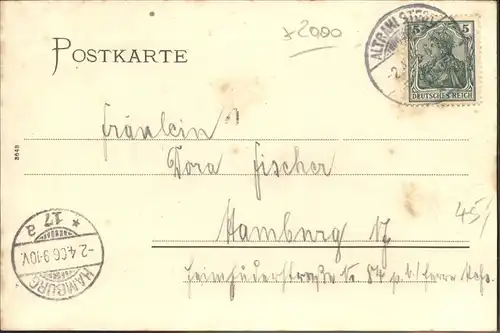 x 2000
POSTKARTE
5 5
DEUTSCHES REICH
Fräulein
Dora Fischer
Hamburg 17
Heimhuderstraße No 84 p. b/ Herrn
45/
8648
* 17 a
-2.4.06.9-10V.
HAMBURG